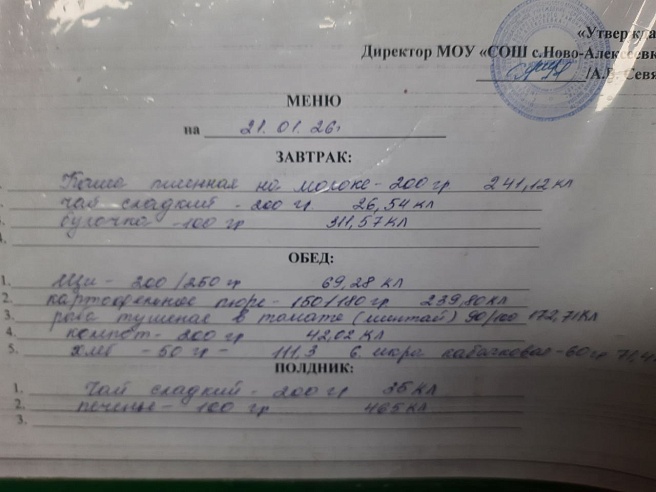 «Утвер
Директор МОУ «СОШ с.Ново-Алексеевк
/А.В. Севя
МЕНЮ
на 21.01.26г
ЗАВТРАК:
Каша пшенная на молоке - 200 гр 241,12 кл
чай сладкий - 200 гр 26,54 кл
булочка - 100 гр 311,57 кл
4.
ОБЕД:
1. Щи - 200/250 гр 69,28 кл
2. картофельное пюре - 150/180 гр 239,80 кл
3. рыба тушеная в томате (минтай) 90/100 172,71 кл
4. компот - 200 гр 42,02 кл
5. хлеб - 50 гр - 111,3 6. икра кабачковая - 60 гр
ПОЛДНИК:
1. Чай сладкий - 200 гр 26 кл
2. печенье - 100 гр 465 кл
3.